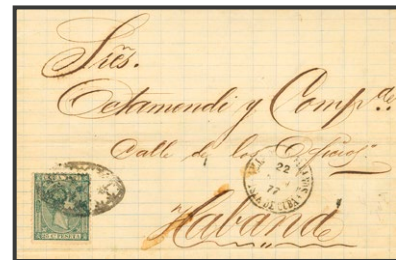 Sres.
Octamendi y Comp
Calle de los Oficios.
22
77
DE CUBA
Habana